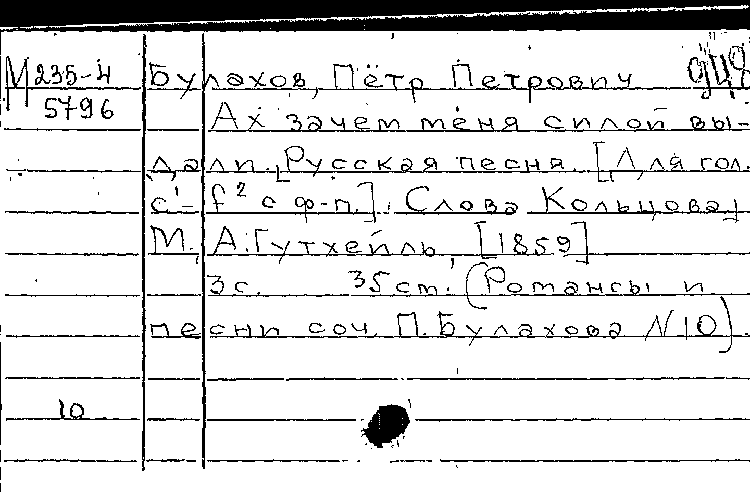 М 235-4 Булахов, Пётр Петрович
5796 Ах зачем меня силой вы-
дали. [Русская песня. [Для гол.
c¹-f² с ф-п.]. Слова Кольцова]
М., А. Гутхейль, [1859]
3с. 35 см. (Романсы и
песни соч. П. Булахова N 10)
10